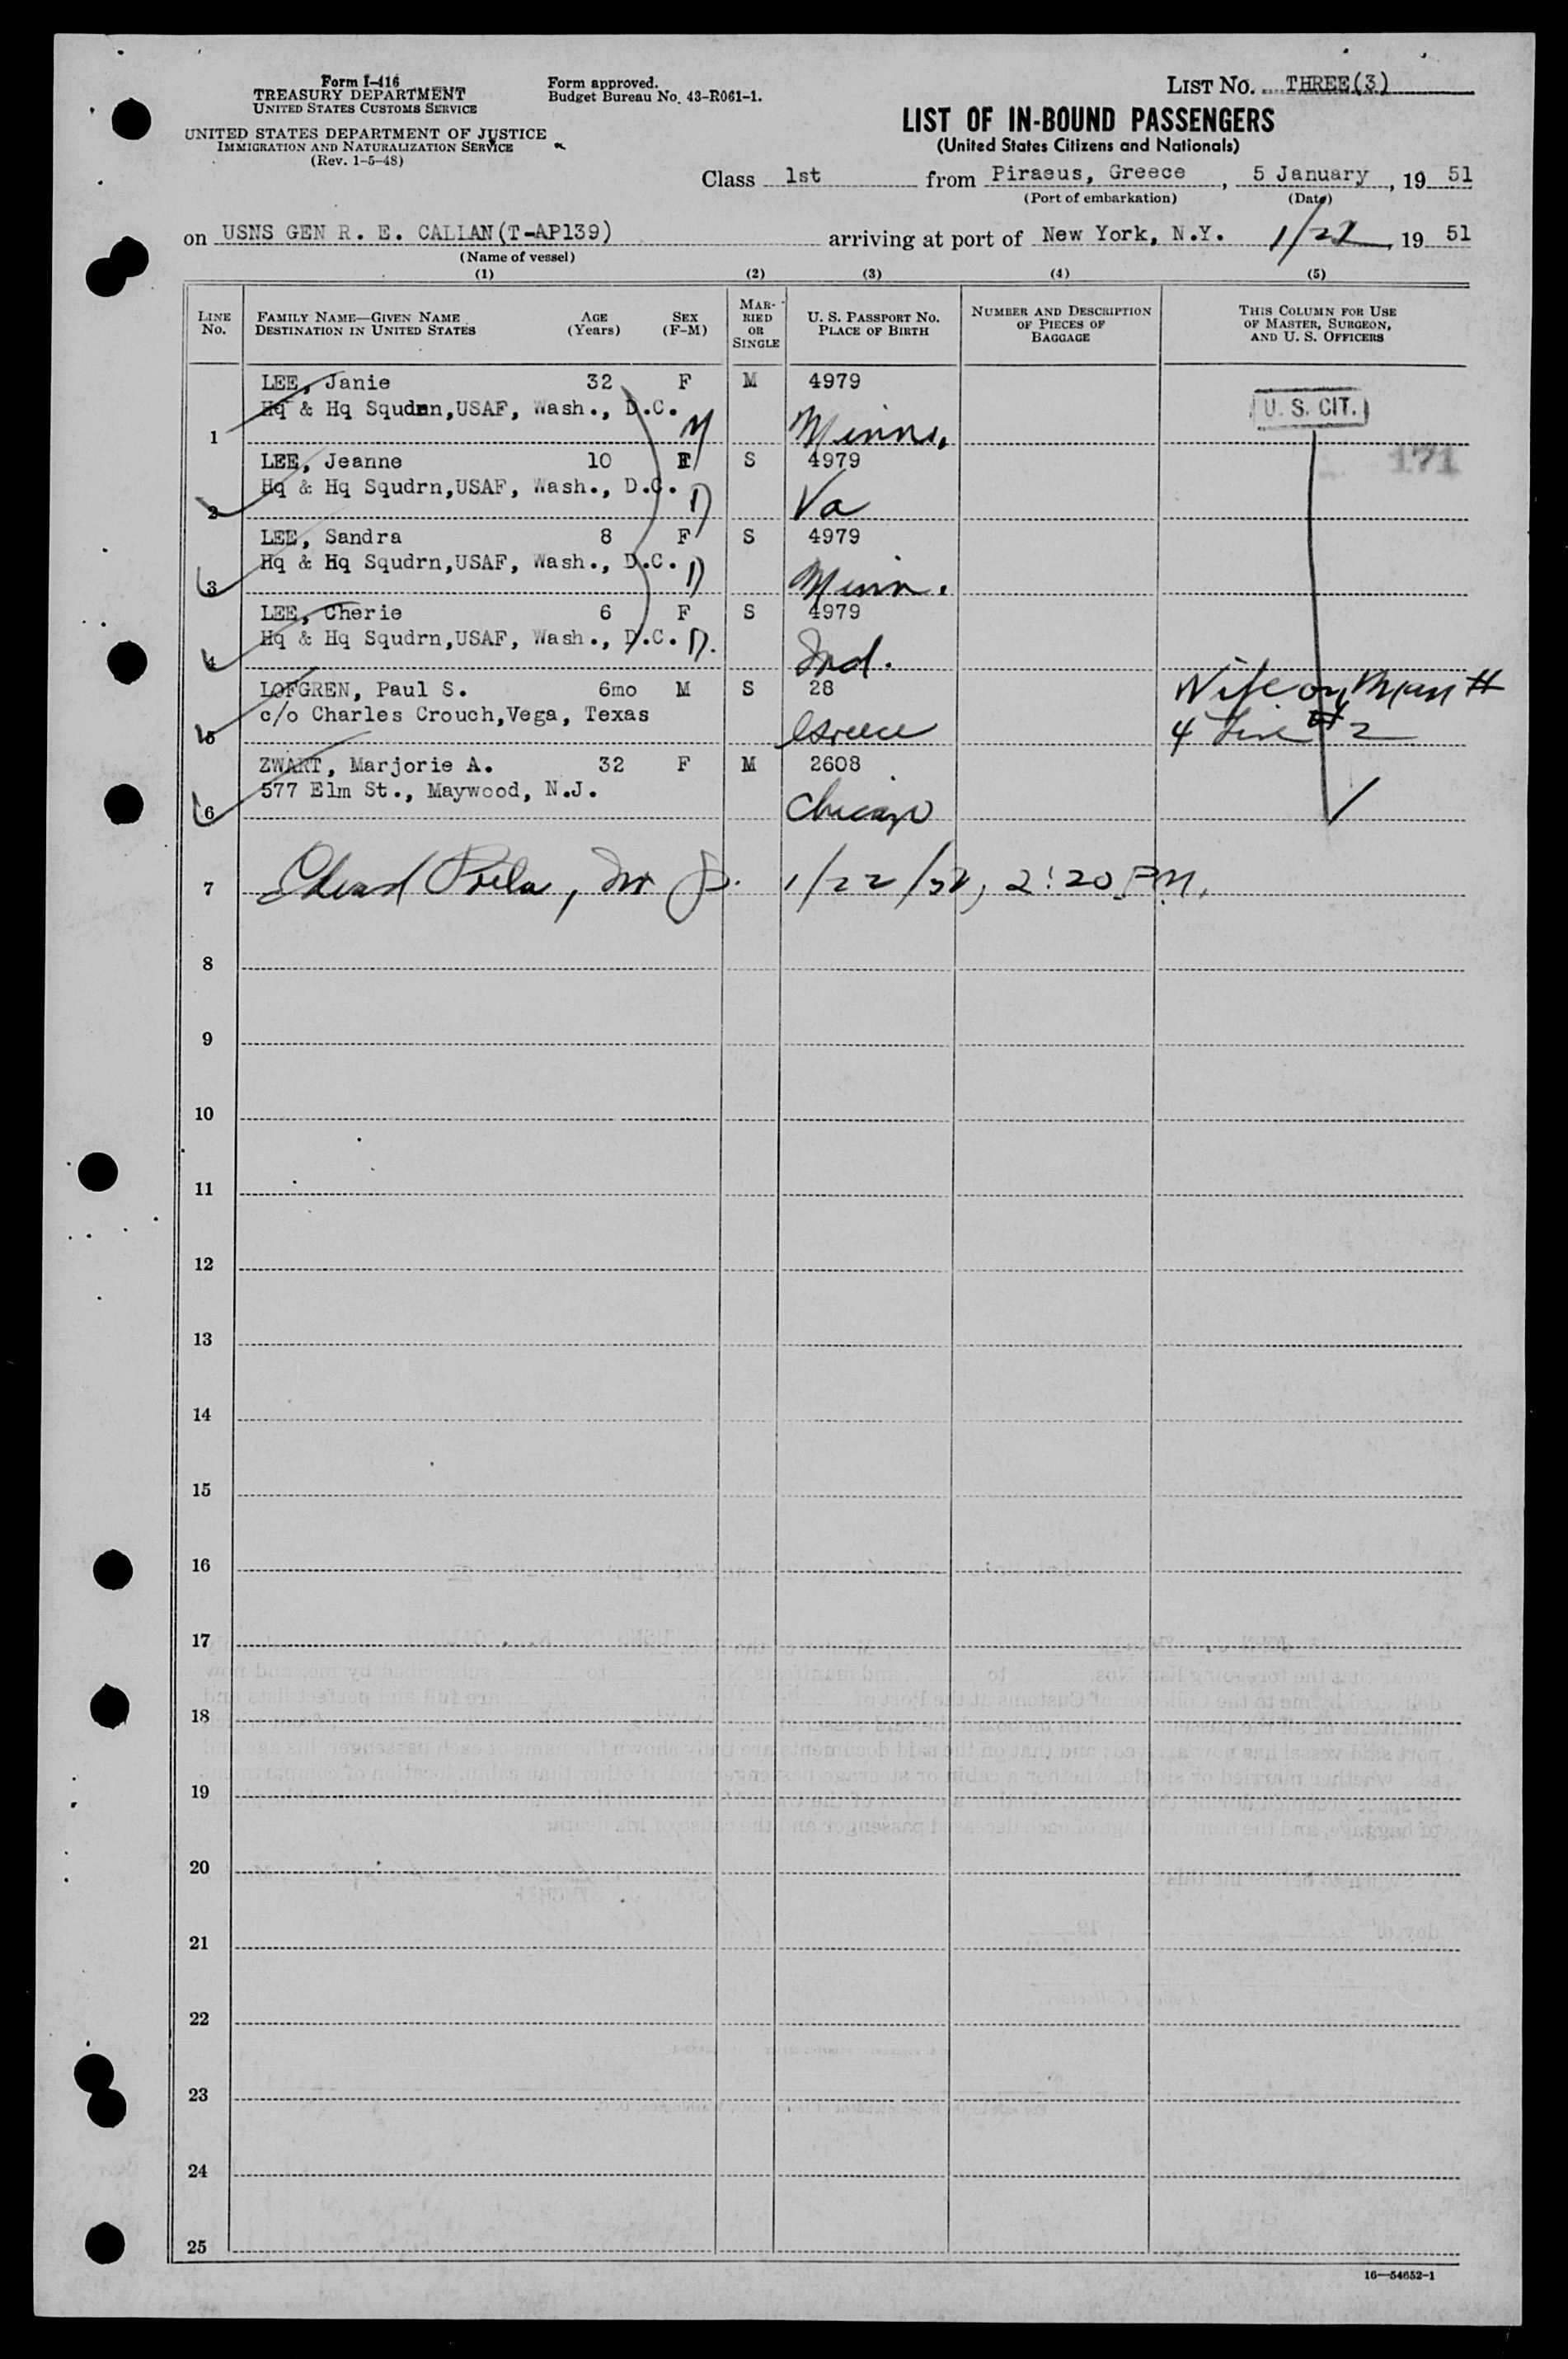 Form I-416
TREASURY DEPARTMENT
UNITED STATES CUSTOMS SERVICE
UNITED STATES DEPARTMENT OF JUSTICE
IMMIGRATION AND NATURALIZATION SERVICE
(Rev. 1-5-48)
Form approved.
Budget Bureau No. 43-R061-1.
LIST NO. THREE(3)
LIST OF IN-BOUND PASSENGERS
(United States Citizens and Nationals)
Class 1st from Piraeus, Greece, 5 January, 19 51
(Port of embarkation) (Date)
on USNS GEN R. E. CALLAN(T-AP139) arriving at port of New York, N.Y. 1/22, 19 51
(Name of vessel)
(1) (2) (3) (4) (5)
LINE No. FAMILY NAME—GIVEN NAME DESTINATION IN UNITED STATES AGE (Years) SEX (F-M) MARRIED OR SINGLE U. S. PASSPORT NO. PLACE OF BIRTH NUMBER AND DESCRIPTION OF PIECES OF BAGGAGE THIS COLUMN FOR USE OF MASTER, SURGEON, AND U. S. OFFICERS
LEE, Janie 32 F M 4979
Hq & Hq Squdrn,USAF, Wash., D.C. U. S. CIT.
1 M Minn.
LEE, Jeanne 10 F S 4979 171
Hq & Hq Squdrn,USAF, Wash., D.C.
2 D Va
LEE, Sandra 8 F S 4979
Hq & Hq Squdrn,USAF, Wash., D.C.
3 D Minn.
LEE, Cherie 6 F S 4979
Hq & Hq Squdrn,USAF, Wash., D.C.
4 D. Ind.
LOFGREN, Paul S. 6mo M S 28 Wife on Man #
c/o Charles Crouch,Vega, Texas
5 Greece 4 Line #2
ZWART, Marjorie A. 32 F M 2608
577 Elm St., Maywood, N.J.
6 Chicago
7 1/22/51, 2:20 P.M.
8
9
10
11
12
13
14
15
16
17
18
19
20
21
22
23
24
25
16—54652-1